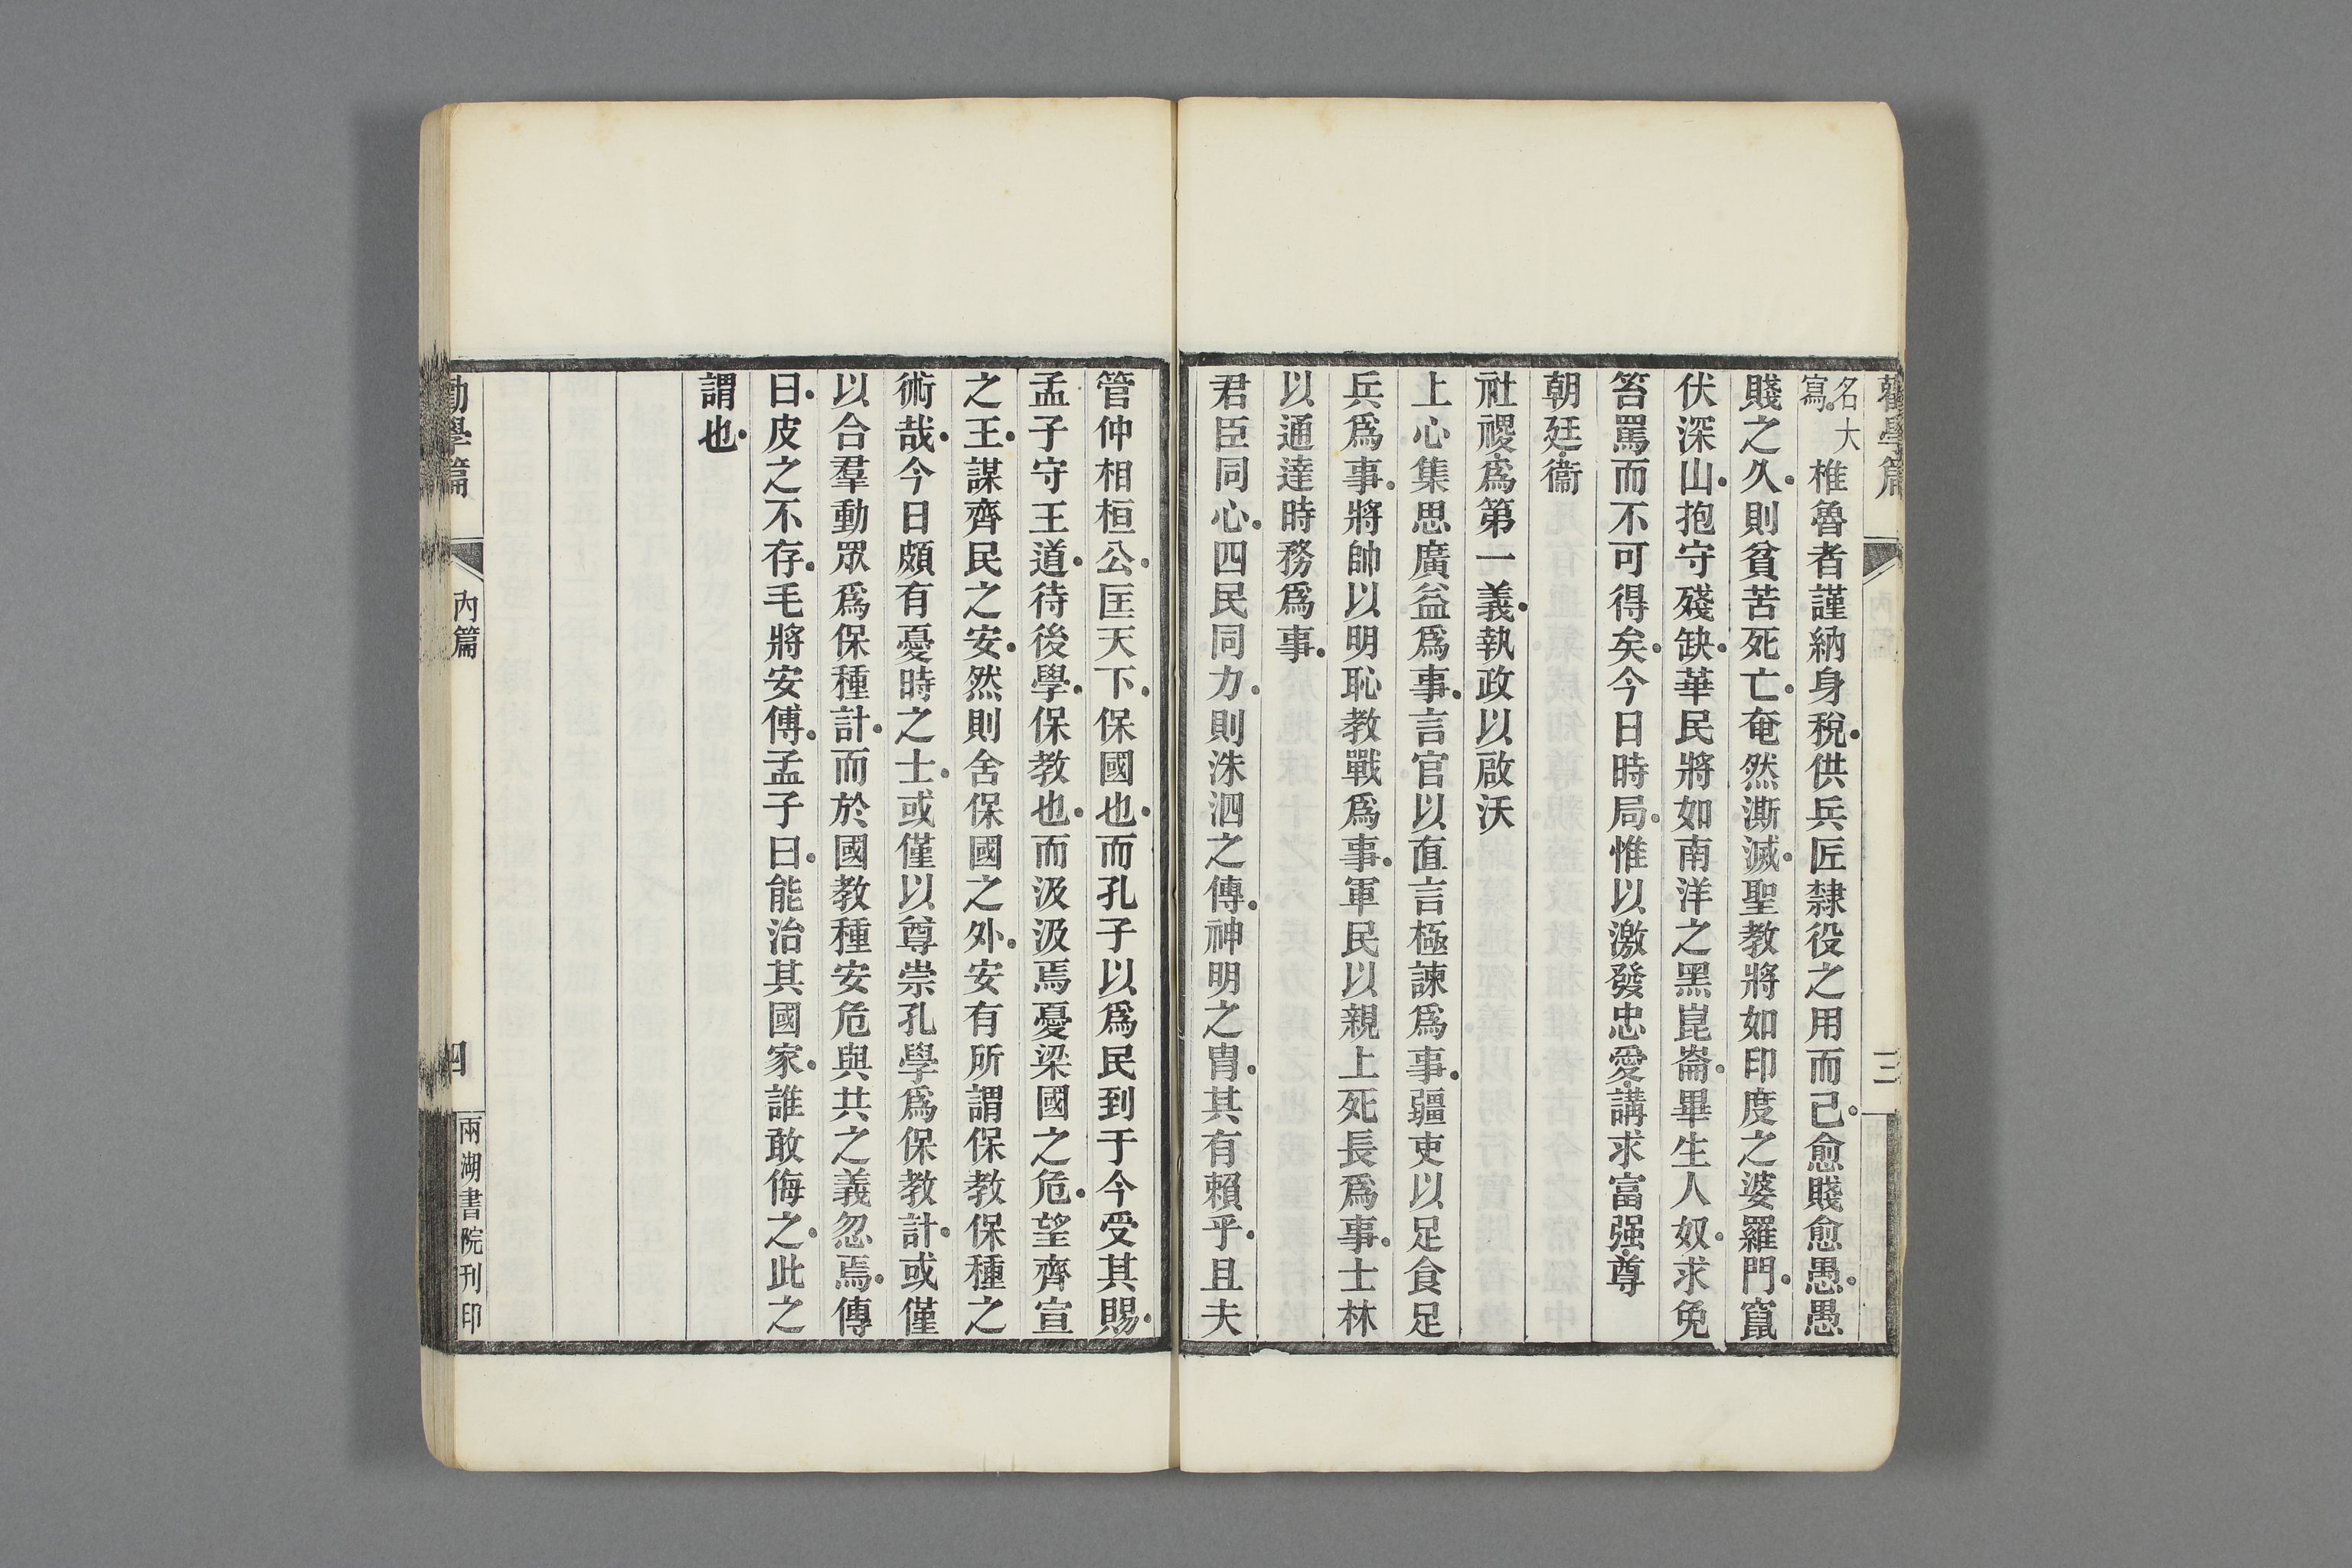 勸學篇
三
名大
寫
椎魯者謹納身稅供兵匠隸役之用而已愈賤愈愚愚
賤之久則貧苦死亡奄然澌滅聖教將如印度之婆羅門竄
伏深山抱守殘缺華民將如南洋之黑崑崙畢生人奴求免
笞罵而不可得矣今日時局惟以激發忠愛講求富强尊
朝廷衞
社稷爲第一義執政以啟沃
上心集思廣益爲事言官以直言極諫爲事疆吏以足食足
兵爲事將帥以明恥教戰爲事軍民以親上死長爲事士林
以通達時務爲事
君臣同心四民同力則洙泗之傳神明之胄其有賴乎且夫
管仲相桓公匡天下保國也而孔子以爲民到于今受其賜
孟子守王道待後學保教也而汲汲焉憂梁國之危望齊宣
之王謀齊民之安然則舍保國之外安有所謂保教保種之
術哉今日頗有憂時之士或僅以尊崇孔學爲保教計或僅
以合羣動眾爲保種計而於國教種安危與共之義忽焉傳
曰皮之不存毛將安傅孟子曰能治其國家誰敢侮之此之
謂也
勸學篇
內篇
四
兩湖書院刊印